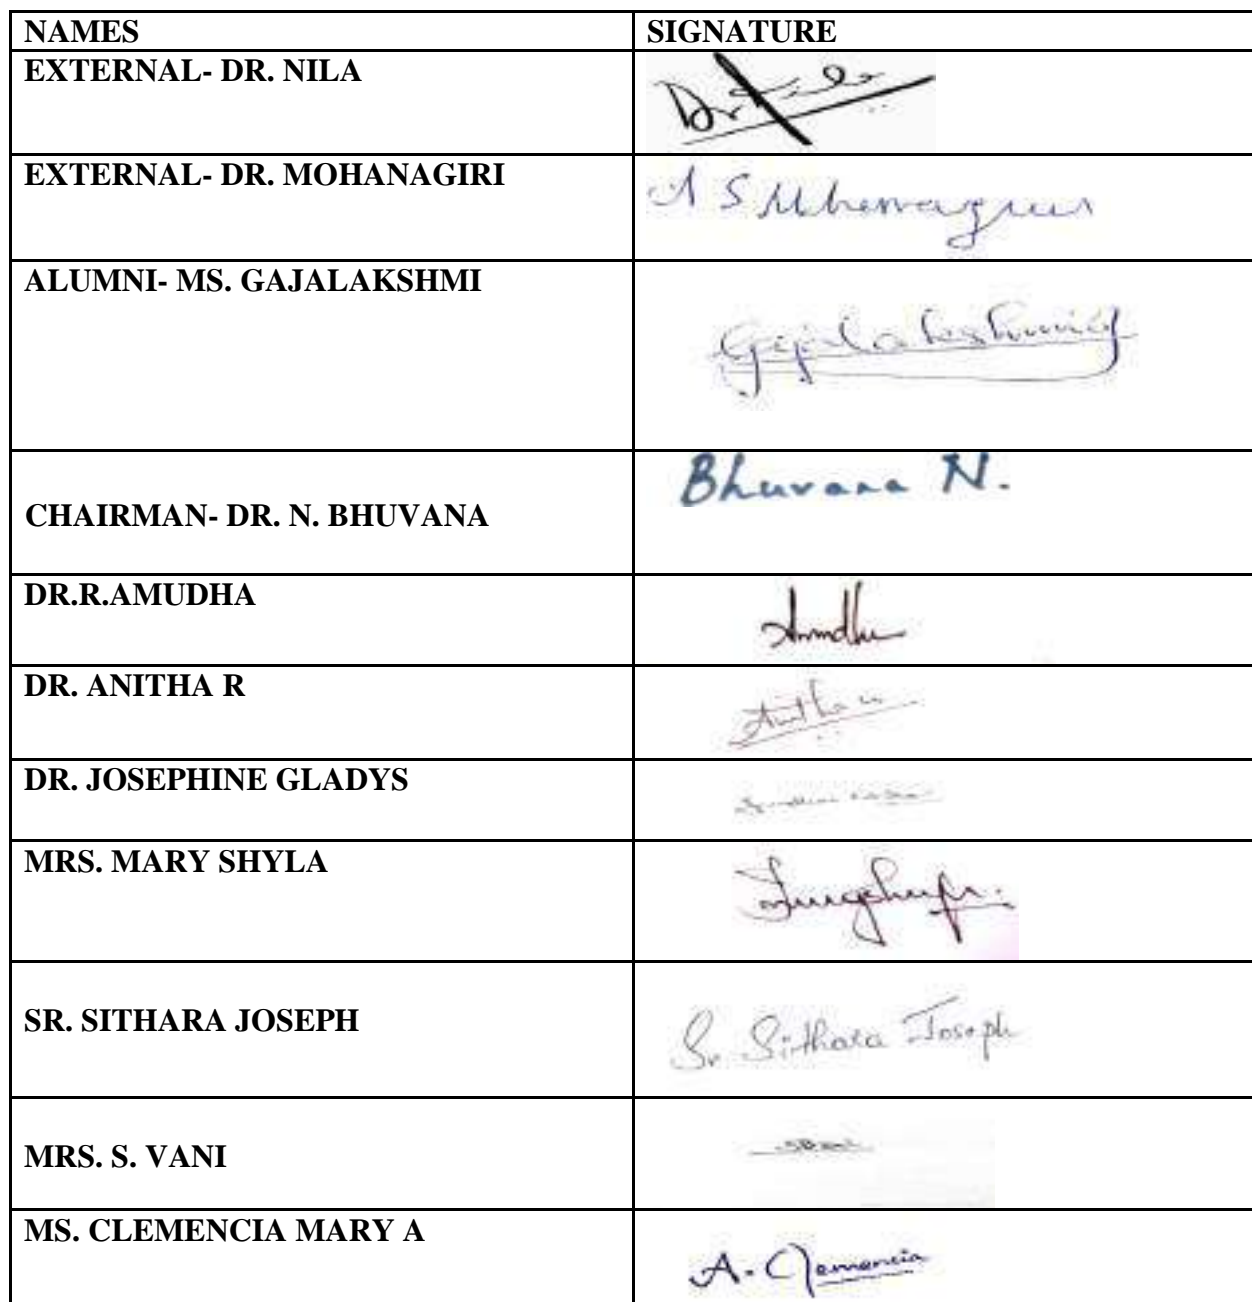 NAMES SIGNATURE
EXTERNAL- DR. NILA Dr
EXTERNAL- DR. MOHANAGIRI
ALUMNI- MS. GAJALAKSHMI
CHAIRMAN- DR. N. BHUVANA Bhuvana N.
DR.R.AMUDHA Amudha
DR. ANITHA R
DR. JOSEPHINE GLADYS
MRS. MARY SHYLA
SR. SITHARA JOSEPH Sr. Sithara Joseph
MRS. S. VANI
MS. CLEMENCIA MARY A A. Clemencia